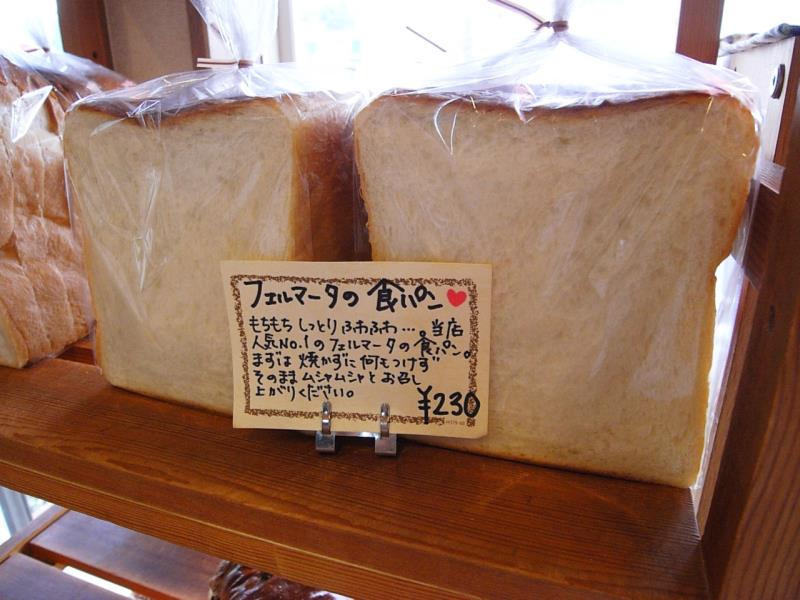 フェルマータの 食パン
もちもち しっとり ふわふわ… 当店
人気No.1のフェルマータの 食パン。
まずは 焼かずに 何もつけず
そのままムシャムシャとお召し
上がりください。
¥230